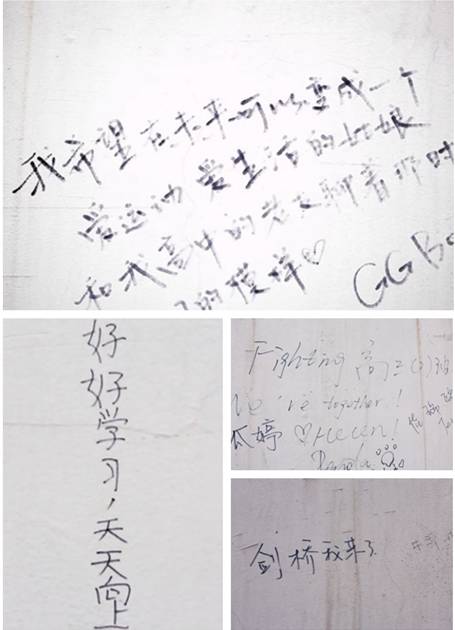 我希望在未来可以变成一个
爱运动 爱生活的姑娘
和我高中的老友聊着那时
的模样♡
GGBo
好好学习,天天向上
Fighting 高三(3)班
We're together!
婷♡Helen!
Panda
剑桥我来了